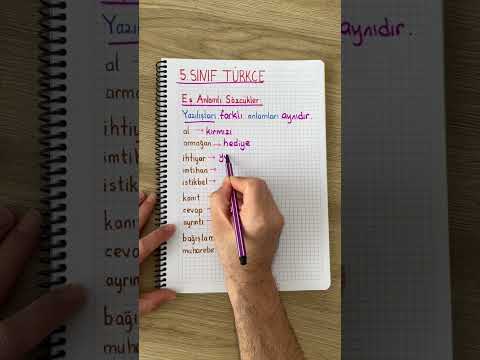 5. SINIF TÜRKÇE
Eş Anlamlı Sözcükler
Yazılışları farklı anlamları aynıdır.
al → kırmızı
armağan → hediye
ihtiyar → y
imtihan →
istikbal →
kanıt
cevap
ayrıntı
bağışlam
muharebe